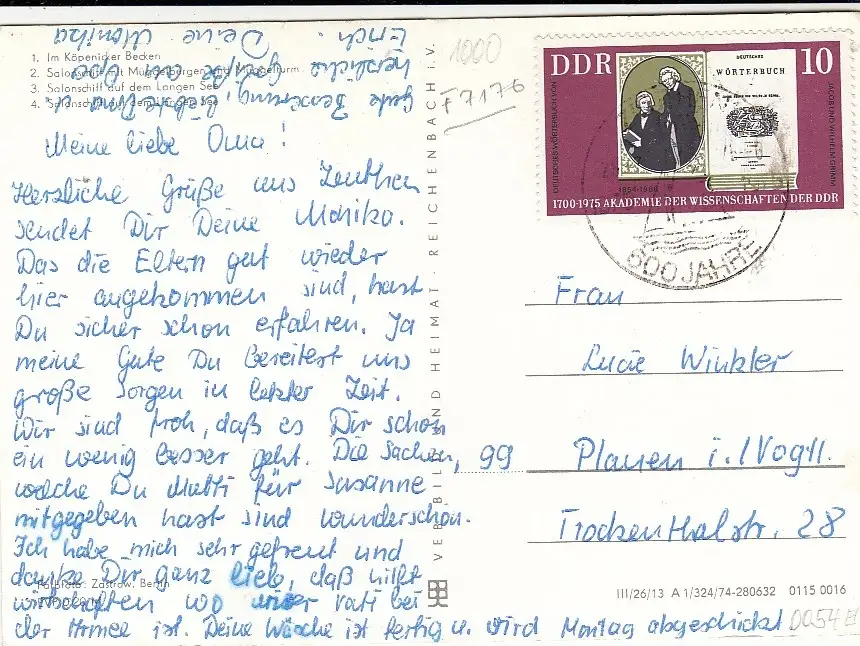 1. Im Köpenicker Becken
2. Salonschiff mit Müggelbergen und Müggelturm
3. Salonschiff auf dem Langen See
4. Salonschiff auf dem Langen See
Meine liebe Oma!
Herzliche Grüße aus Zeuthen
sendet Dir Deine Monika.
Das die Eltern gut wieder
hier angekommen sind, hast
Du sicher schon erfahren. Ja
meine Gute Du bereitest uns
große Sorgen in letzter Zeit.
Wir sind froh, daß es Dir schon
ein wenig besser geht. Die Sachen,
welche Du Mutti für Susanne
mitgegeben hast sind wunderschön.
Ich habe mich sehr gefreut und
danke Dir ganz lieb, daß hilft
wirtschaften wo unser Vati bei
der Armee ist. Deine Wäsche ist fertig u. wird Montag abgeschickt
Gute Besserung,
herzliche Grüße
Erich. Deine Monika
Farbfoto: Zastrow, Berlin
VERBILD UND HEIMAT REICHENBACH i.V.
1000
F7176
DDR 10
DEUTSCHES WÖRTERBUCH
DEUTSCHES WÖRTERBUCH VON
JACOB UND WILHELM GRIMM
1854-1960
1700-1975 AKADEMIE DER WISSENSCHAFTEN DER DDR
600 JAHRE
Frau
Lucie Winkler
99 Plauen i./Vogtl.
Trockenthalstr. 28
III/26/13 A 1/324/74-280632 0115 0016